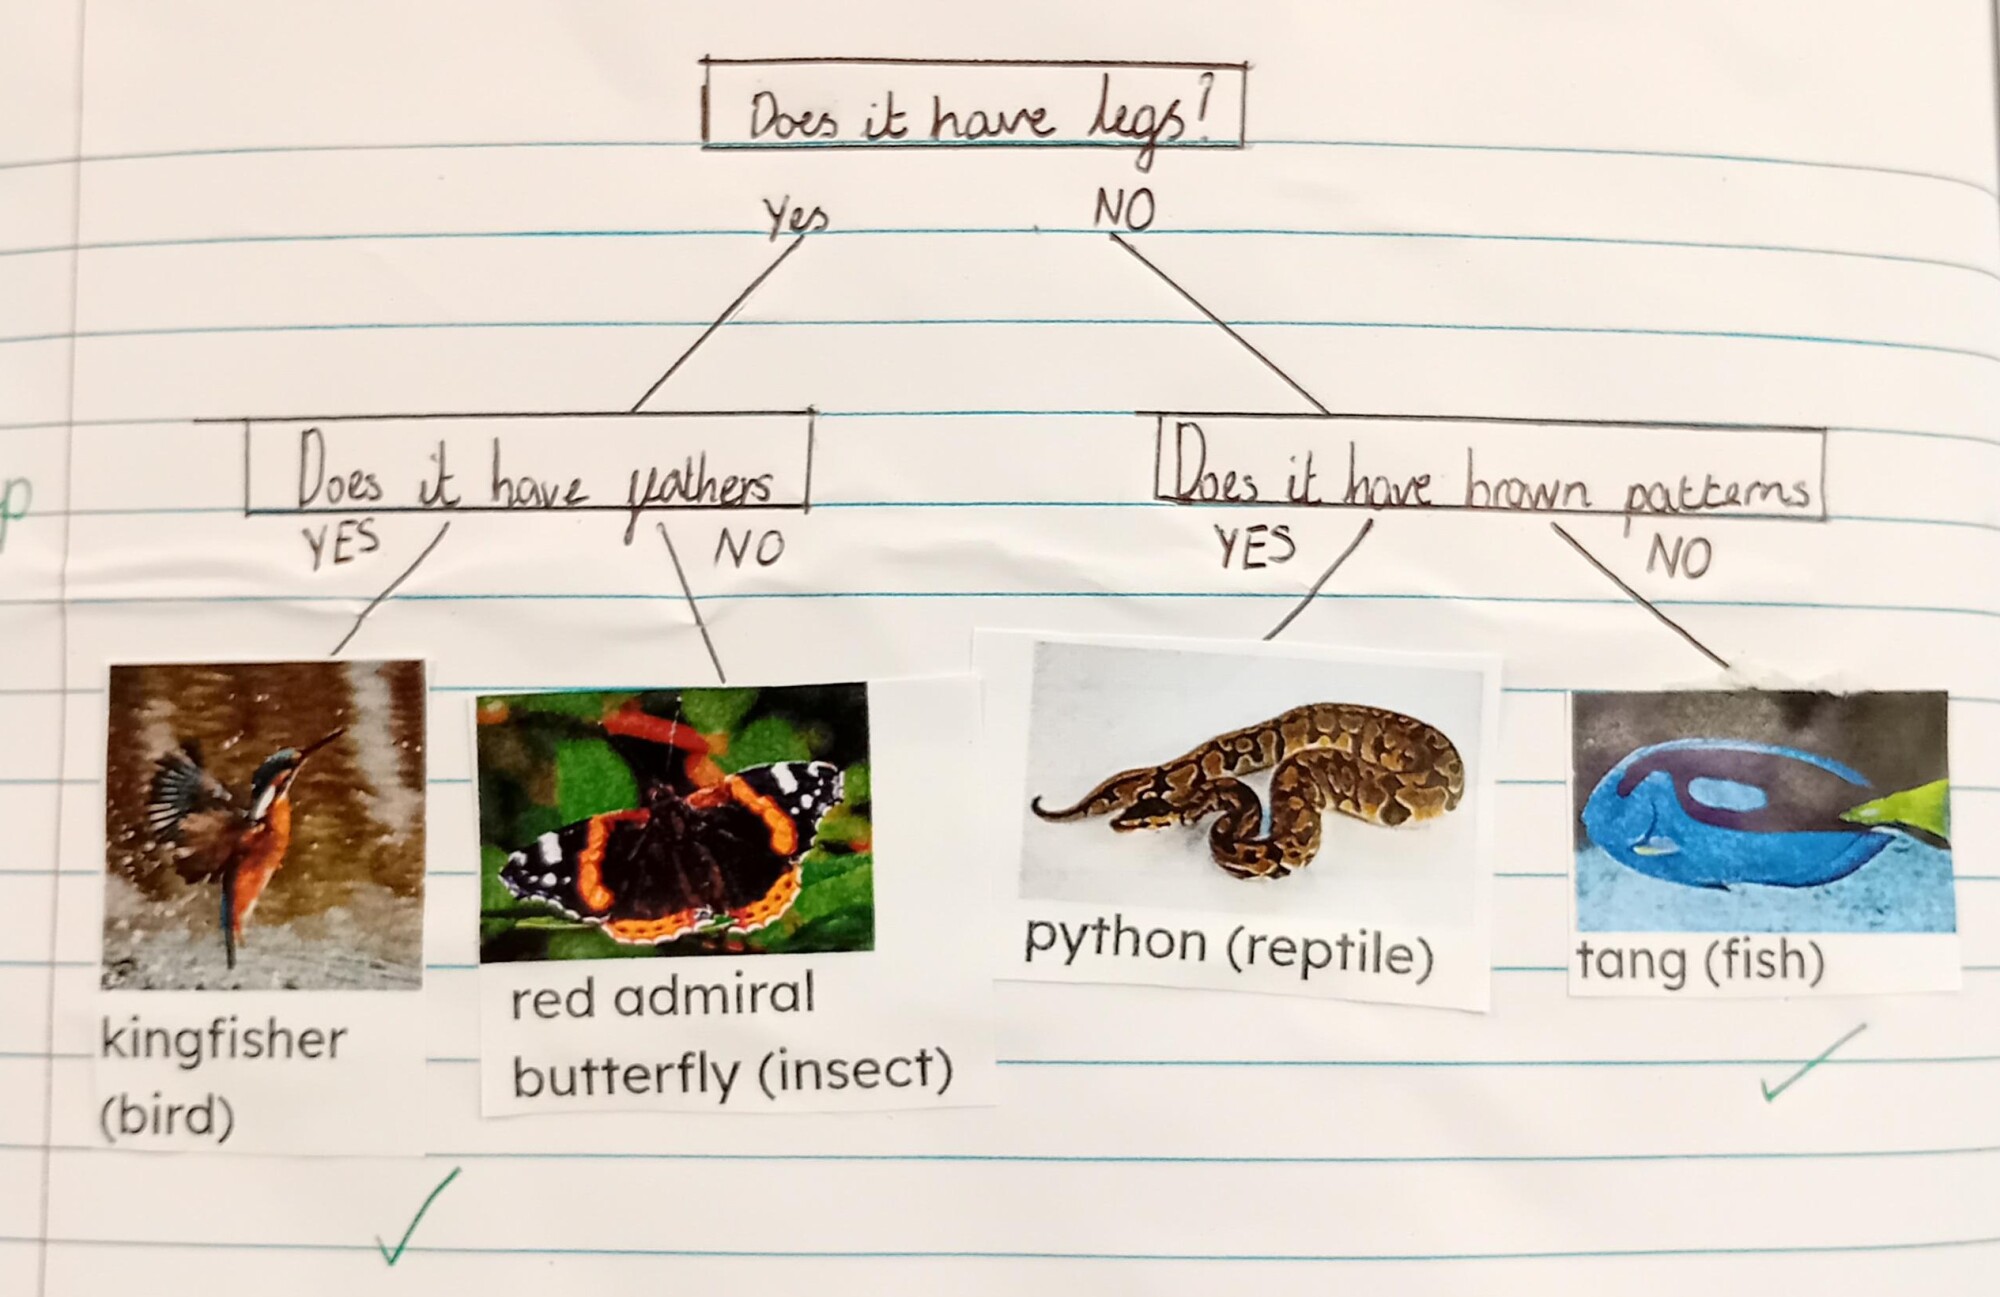 Does it have legs?
Yes NO
Does it have yathers
Does it have brown patterns
YES NO
YES NO
kingfisher
(bird)
red admiral
butterfly (insect)
python (reptile)
tang (fish)